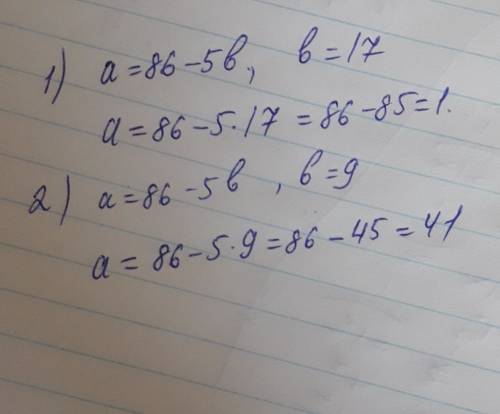 1) a = 86 - 5b, b = 17
a = 86 - 5 · 17 = 86 - 85 = 1.
2) a = 86 - 5b , b = 9
a = 86 - 5 · 9 = 86 - 45 = 41